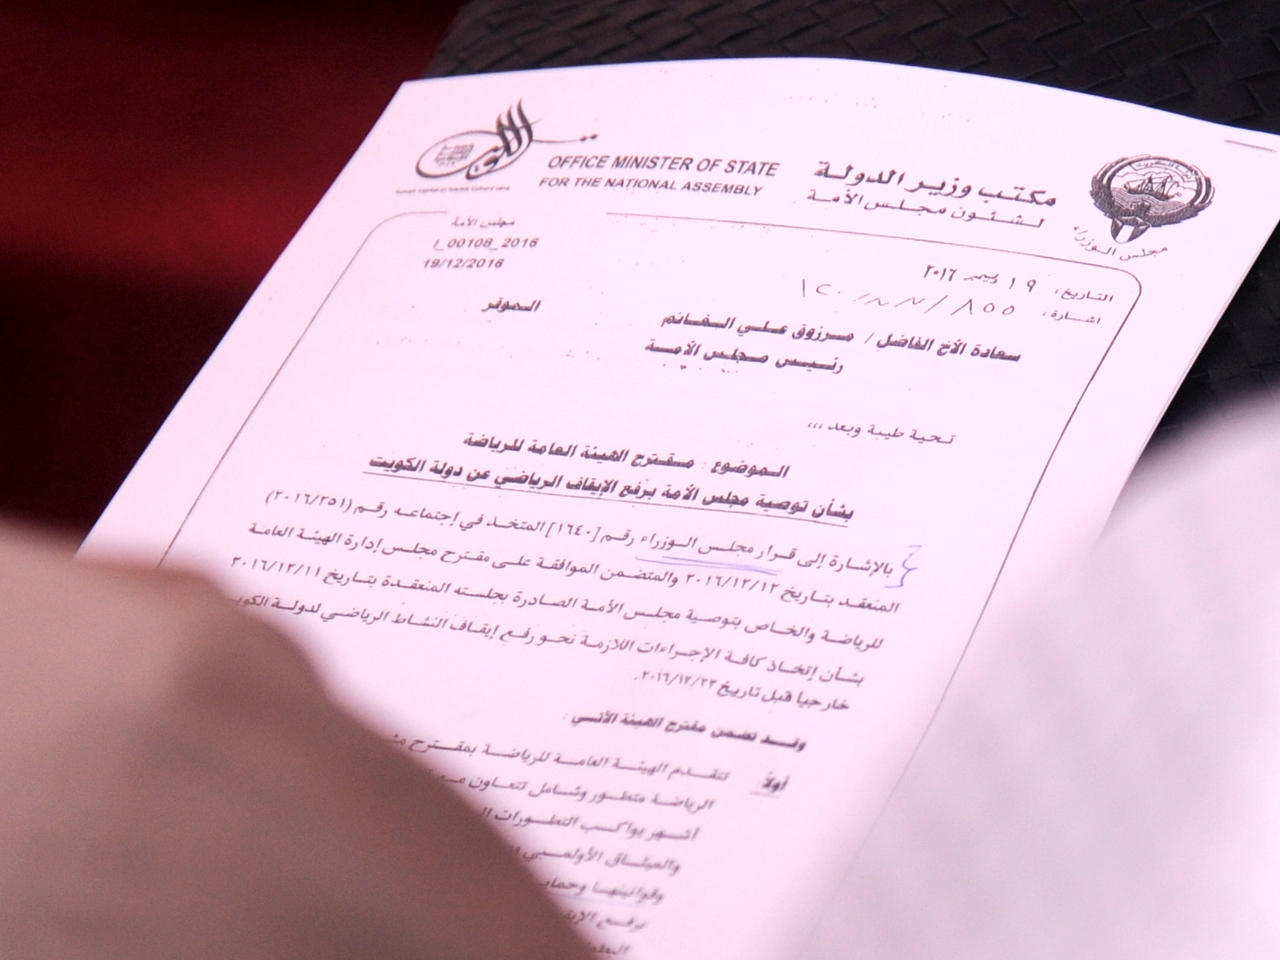 OFFICE MINISTER OF STATE
FOR THE NATIONAL ASSEMBLY
مكتب وزير الدولة
لشئون مجلس الأمة
مجلس الوزراء
مجلس الأمة
I_00108_2016
19/12/2016
التاريخ: ١٩ ديسمبر ٢٠١٦
اشارة:
سعادة الأخ الفاضل / مرزوق علي الغانم الموقر
رئيس مجلس الأمة
تحية طيبة وبعد ,,,
الموضوع : مقترح الهيئة العامة للرياضة
بشأن توصية مجلس الأمة برفع الإيقاف الرياضي عن دولة الكويت
بالإشارة إلى قرار مجلس الوزراء رقم [١٦٤٠] المتخذ في إجتماعه رقم (٢٠١٦/٢٥١)
المنعقد بتاريخ ٢٠١٦/١٢/١٢ والمتضمن الموافقة على مقترح مجلس إدارة الهيئة العامة
للرياضة والخاص بتوصية مجلس الأمة الصادرة بجلسته المنعقدة بتاريخ ٢٠١٦/١٢/١١
بشأن إتخاذ كافة الإجراءات اللازمة نحو رفع إيقاف النشاط الرياضي لدولة
خارجيا قبل تاريخ ٢٠١٦/١٢/٢٣.
وقد تضمن مقترح الهيئة الآتي :
أولاً تتقدم الهيئة العامة للرياضة بمقترح
الرياضة متطور وشامل تتعاون
أشهر يواكب التطورات
والميثاق الأولمبي
وقوانينها
برفع